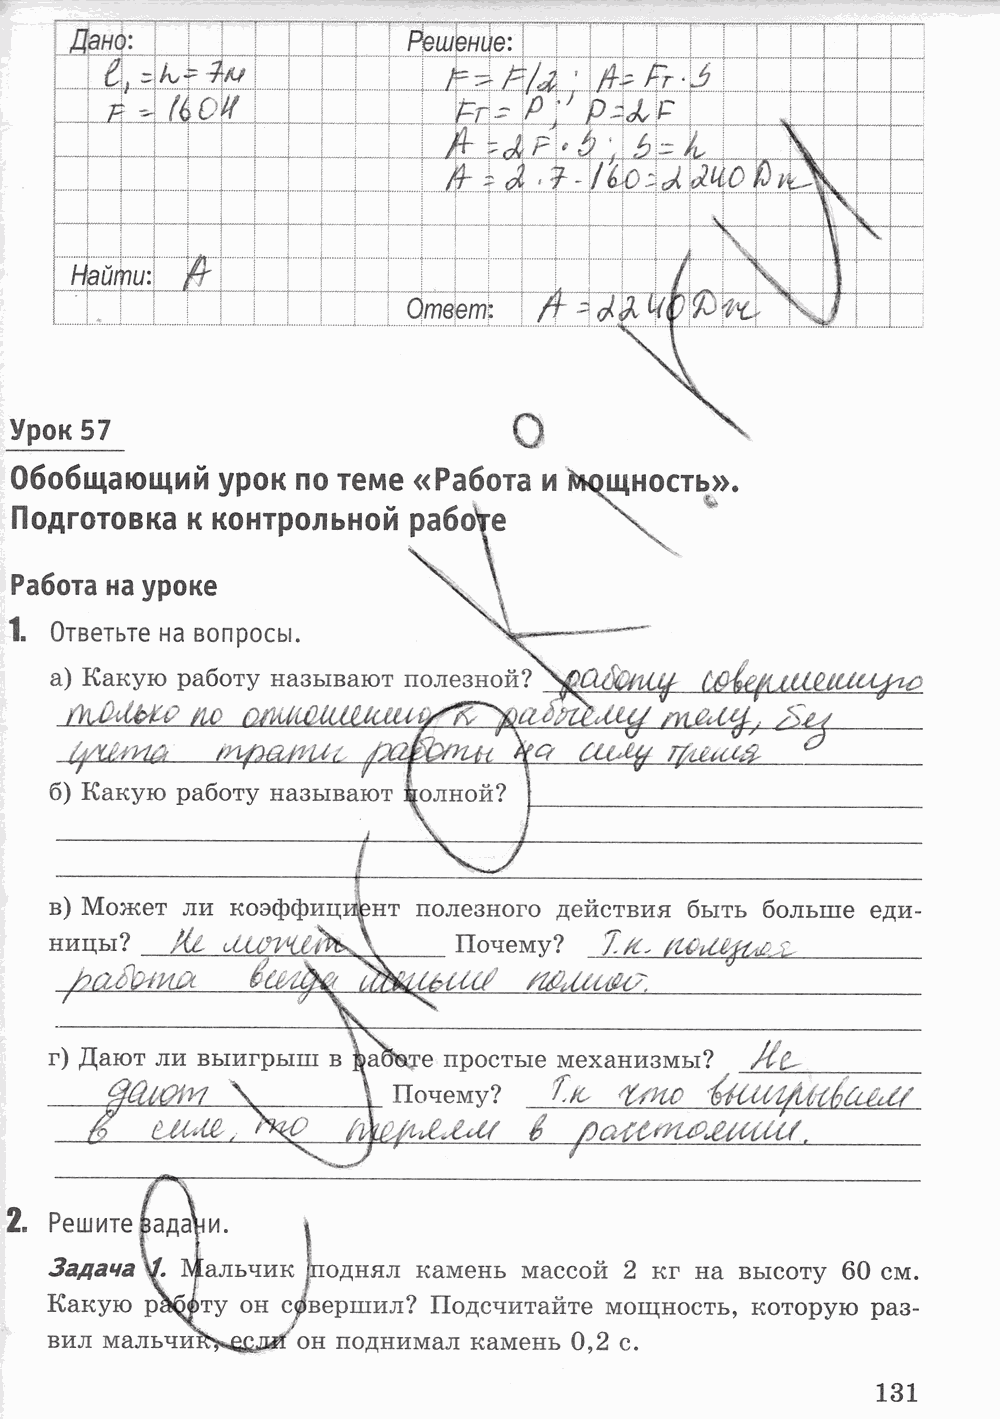 Дано: Решение:
ℓ₁ = h = 7м F = F/2 ; A = Fт · S
F = 160Н Fт = P ; P = 2F
A = 2F · S ; S = h
A = 2 · 7 · 160 = 2240 Дж
Найти: A
Ответ: A = 2240 Дж
Урок 57
Обобщающий урок по теме «Работа и мощность».
Подготовка к контрольной работе
Работа на уроке
1. Ответьте на вопросы.
а) Какую работу называют полезной? работу совершенную
только по отношению к рабочему телу, без
учета траты работы на силу трения
б) Какую работу называют полной?
в) Может ли коэффициент полезного действия быть больше еди-
ницы? Не может Почему? Т.к. полезная
работа всегда меньше полной.
г) Дают ли выигрыш в работе простые механизмы? Не
дают Почему? Т.к что выигрываем
в силе, то теряем в расстоянии.
2. Решите задачи.
Задача 1. Мальчик поднял камень массой 2 кг на высоту 60 см.
Какую работу он совершил? Подсчитайте мощность, которую раз-
вил мальчик, если он поднимал камень 0,2 с.
131